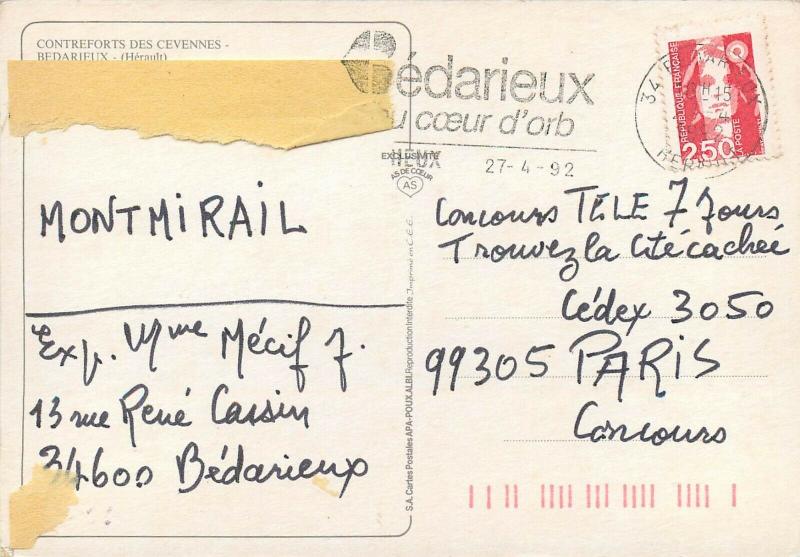 CONTREFORTS DES CEVENNES -
BEDARIEUX - (Hérault)
MONTMIRAIL
Exp. Mme Mécif J.
13 rue René Cassin
34600 Bédarieux
Bédarieux
au cœur d'orb
27-4-92
EXCLUSIVITÉ
AS DE CŒUR
AS
S.A. Cartes Postales APA-POUX, ALBI. Reproduction Interdite Imprimé en C.E.E.
REPUBLIQUE FRANÇAISE
2,50
LA POSTE
Concours TELE 7 Jours
Trouvez la Cité cachée
Cédex 3050
99305 PARIS
Concours